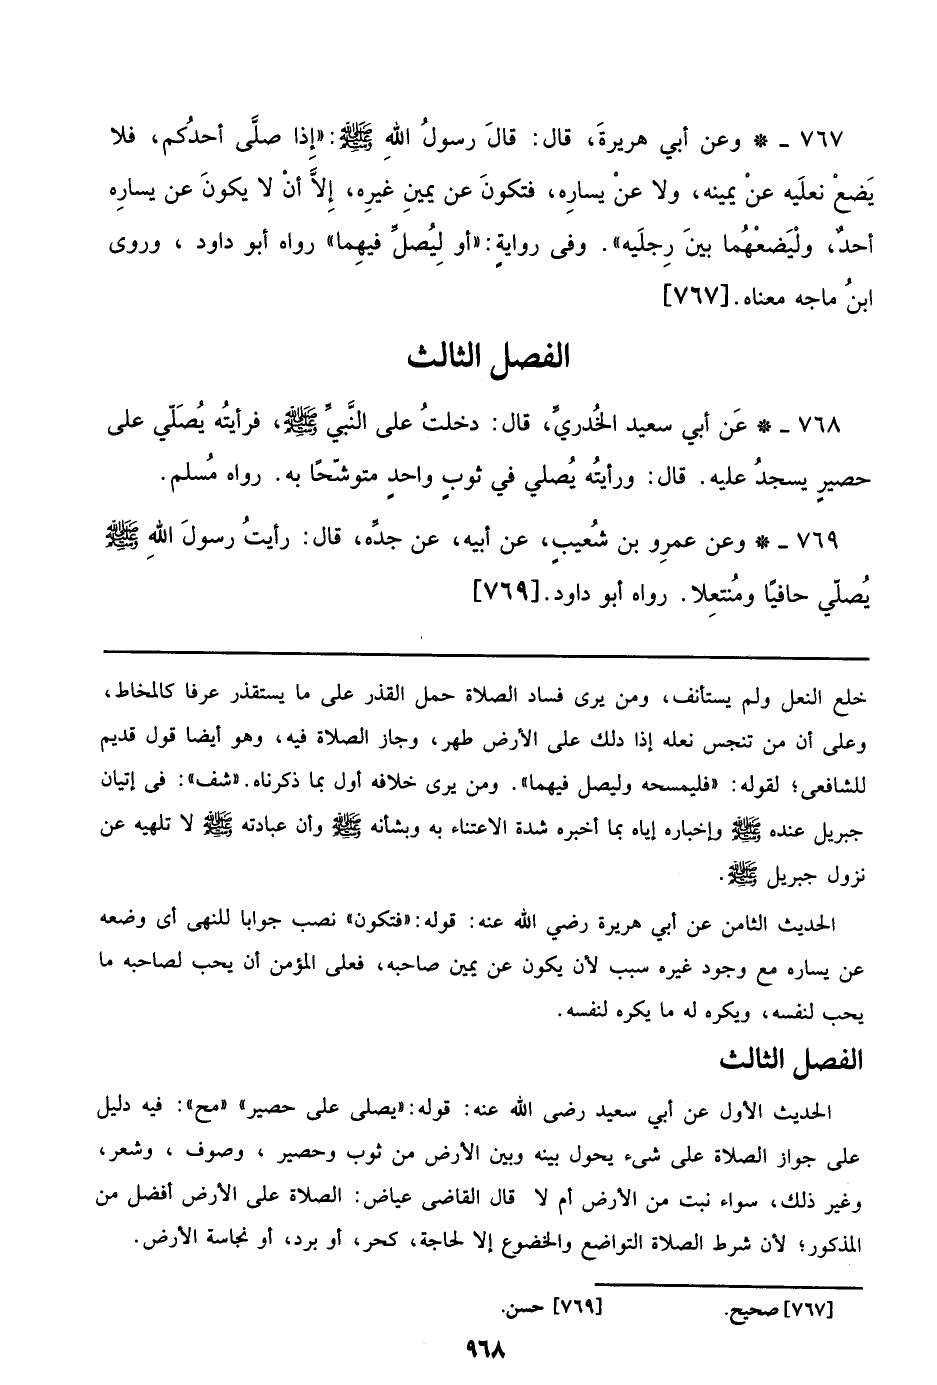 ٧٦٧ ـ * وعن أبي هريرةَ، قال: قالَ رسولُ اللهِ ﷺ: «إِذا صلَّى أحدُكم، فلا
يَضعْ نعلَيه عنْ يمينه، ولا عنْ يسارِه، فتكونَ عن يمينِ غيرِه، إِلاَّ أنْ لا يكونَ عن يسارِه
أحدٌ، ولْيَضعْهُما بينَ رِجلَيه». وفى روايةٍ: «أو لِيُصلِّ فيهِما» رواه أبو داود ، وروى
ابنُ ماجه معناه. [٧٦٧]
الفصل الثالث
٧٦٨ ـ * عَن أبي سعيد الخُدريِّ، قال: دخلتُ على النَّبيِّ ﷺ، فرأيتُه يُصَلّي على
حصيرٍ يسجدُ عليه. قال: ورأيتُه يُصلي في ثوبٍ واحدٍ متوشّحًا به. رواه مُسلم.
٧٦٩ ـ * وعن عمرِو بن شُعيبٍ، عن أبيه، عن جدِّه، قال: رأيتُ رسولَ اللهِ ﷺ
يُصلّي حافيًا ومُنتعِلا. رواه أبو داود. [٧٦٩]
خلع النعل ولم يستأنف، ومن يرى فساد الصلاة حمل القذر على ما يستقذر عرفا كالمخاط،
وعلى أن من تنجس نعله إذا دلك على الأرض طهر، وجاز الصلاة فيه، وهو أيضا قول قديم
للشافعى؛ لقوله: «فليمسحه وليصل فيهما». ومن يرى خلافه أول بما ذكرناه. «شف»: فى إتيان
جبريل عنده ﷺ وإخباره إياه بما أخبره شدة الاعتناء به وبشأنه ﷺ وأن عبادته ﷺ لا تلهيه عن
نزول جبريل ﷺ.
الحديث الثامن عن أبي هريرة رضي الله عنه: قوله: «فتكون» نصب جوابا للنهى أى وضعه
عن يساره مع وجود غيره سبب لأن يكون عن يمين صاحبه، فعلى المؤمن أن يحب لصاحبه ما
يحب لنفسه، ويكره له ما يكره لنفسه.
الفصل الثالث
الحديث الأول عن أبي سعيد رضى الله عنه: قوله: «يصلى على حصير» «مح»: فيه دليل
على جواز الصلاة على شىء يحول بينه وبين الأرض من ثوب وحصير ، وصوف ، وشعر،
وغير ذلك، سواء نبت من الأرض أم لا قال القاضى عياض: الصلاة على الأرض أفضل من
المذكور؛ لأن شرط الصلاة التواضع والخضوع إلا لحاجة، كحر، أو برد، أو نجاسة الأرض.
[٧٦٧] صحيح. [٧٦٩] حسن.
٩٦٨